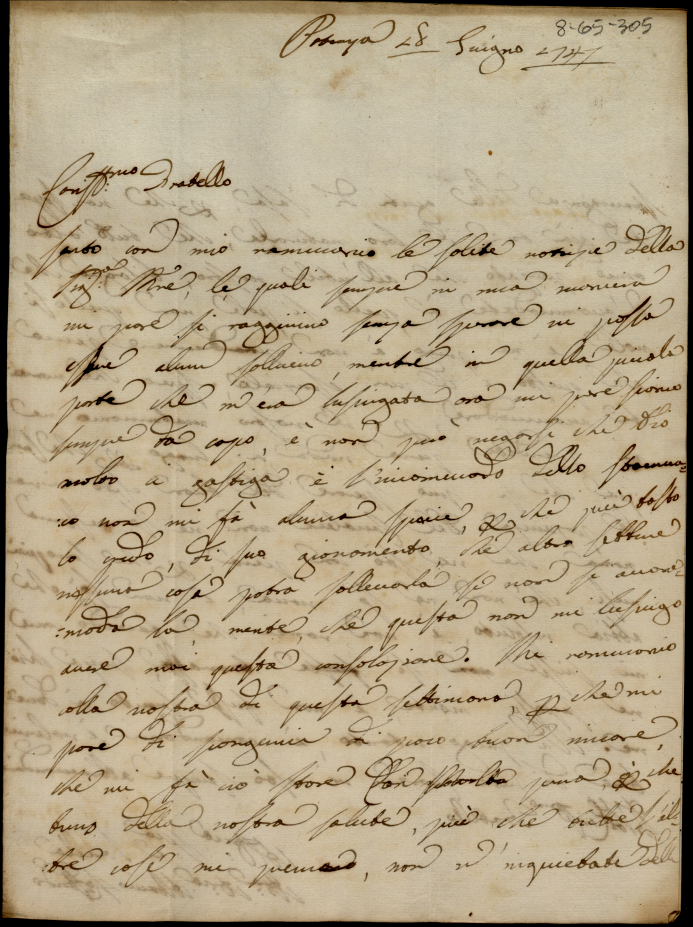 8-65-305
Petraya 28 Giugno 1747
Cariss:mo Fratello
sento con mio rammarico le solite notizie della
Sig:ra M̃re, le quali sempre in mia maniera
mi pare si raggirino senza sperare vi possa
essere alcun sollievo, mentre in quella piccola
parte che m'era lusingata ora mi pare siamo
sempre da capo, e non può negarsi che Dio
molto ci gastiga e l'incommodo dello stomma:
:co non mi fà alcuna specie, che più tosto
lo credo, di suo giovamento, che altro
nessuna cosa potrà sollevarla se non se accom:
:moda la mente, che questa non mi lusingo
avere mai questa consolazione. Mi rammarico
colla vostra di questa settimana, che mi
pare di scorgervi di poco buon umore,
che mi fà ciò stare con pena, che
della vostra salute, più che
tre cose mi premano, non v'inquietate delle